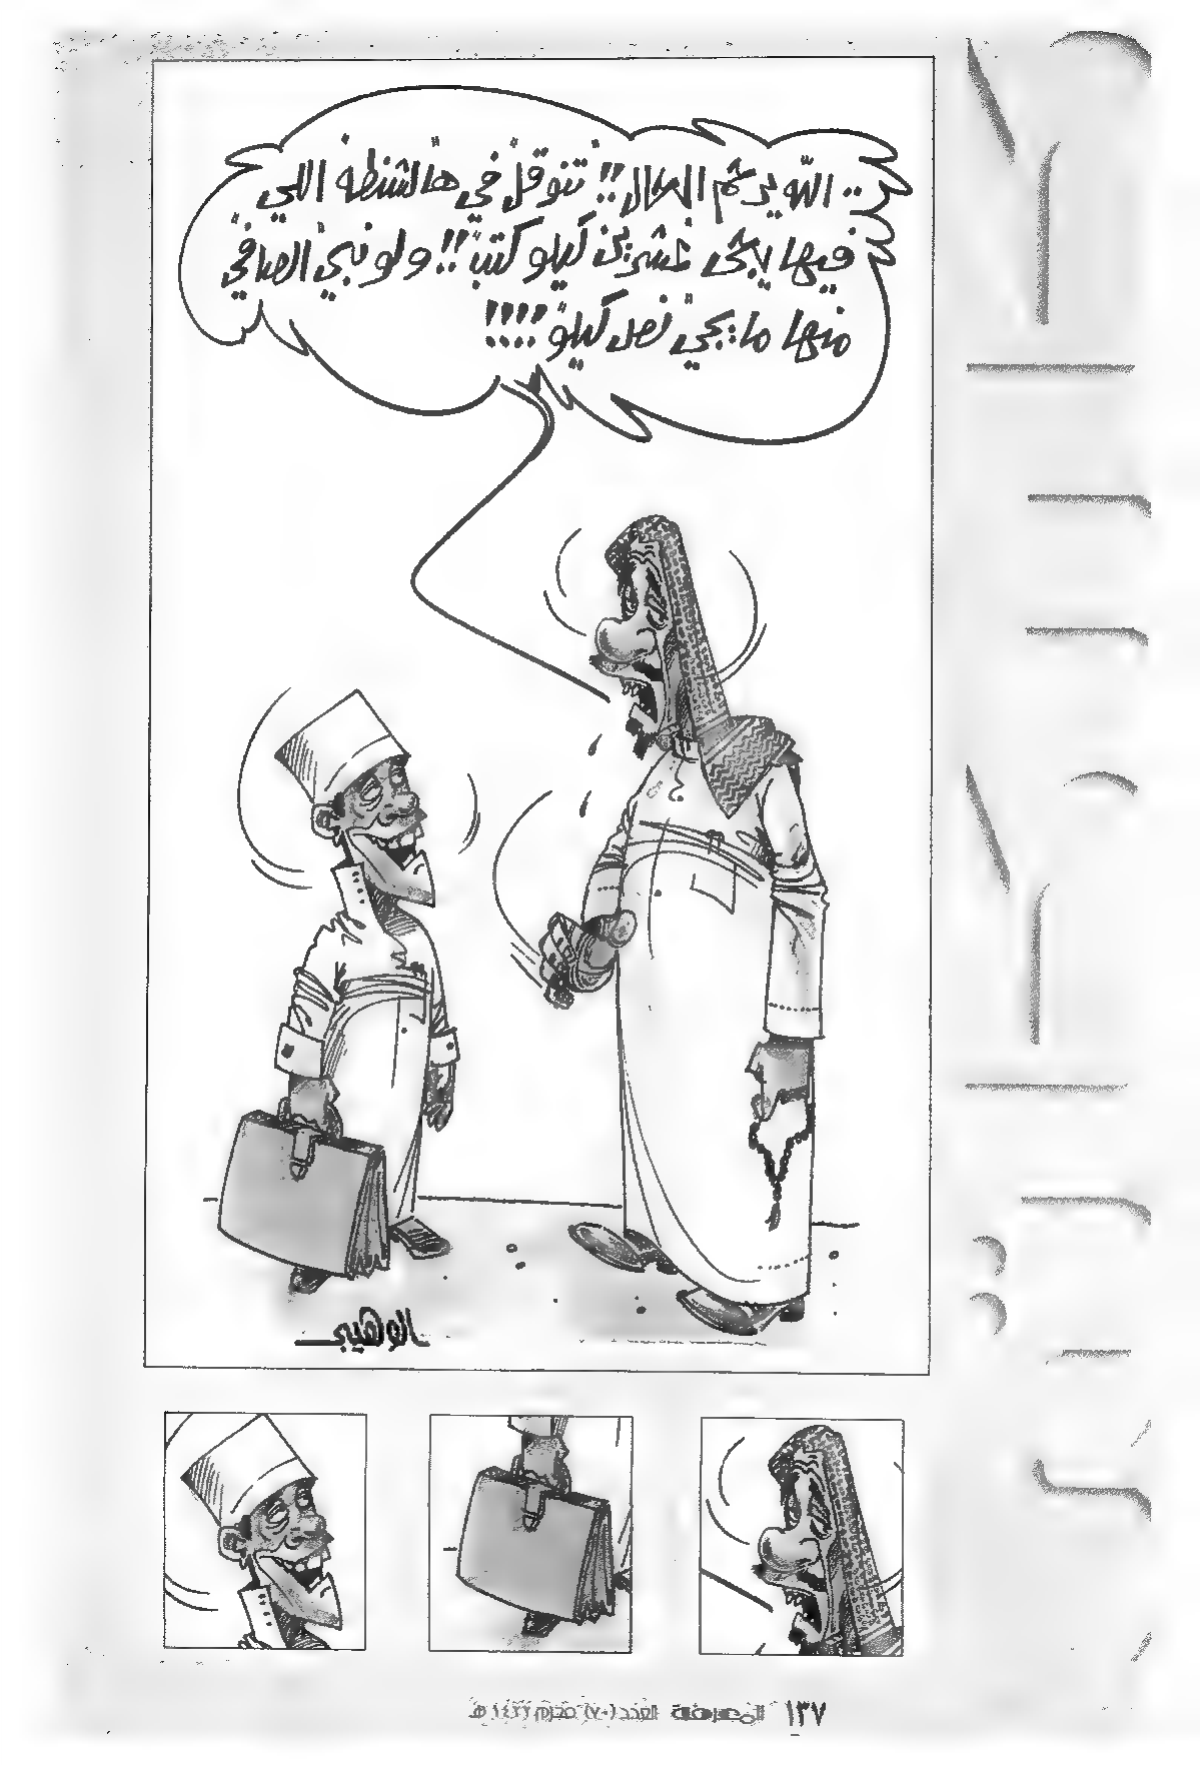 .. الله يرحم الحال!! تنوقل في هالشنطة اللي
فيها يجي عشرين كيلو كتب!! ولو نبي الصافي
منها ما يجي نصف كيلو!!!!
الوهيبي
١٣٧ المعرفة العدد (٧٠) محرم ١٤٢٢ هـ